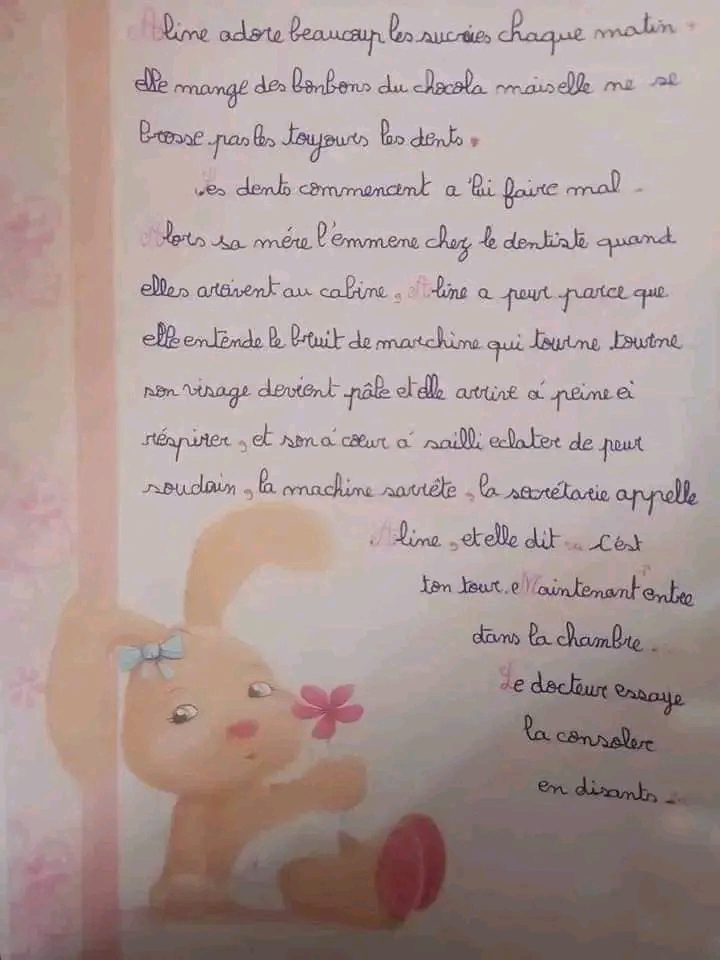 Aline adore beaucoup les sucréies chaque matin.
elle mange des bonbons du chocola mais elle ne se
brosse pas les toujours les dents.
Les dents commencent a lui faire mal.
Alors sa mére l'emmene chez le dentiste quand
elles arrivent au cabine, Aline a peur parce que
elle entende le bruit de marchine qui tourne tourne
son visage devient pâle et elle arrive á peine ei
réspirer, et son á cœur á sailli eclater de peur
soudain, la machine sarrête, la secrétarie appelle
Aline, et elle dit C'est
ton tour. e Maintenant entre
dans la chambre.
Le docteur essaye
la consoler
en disants.